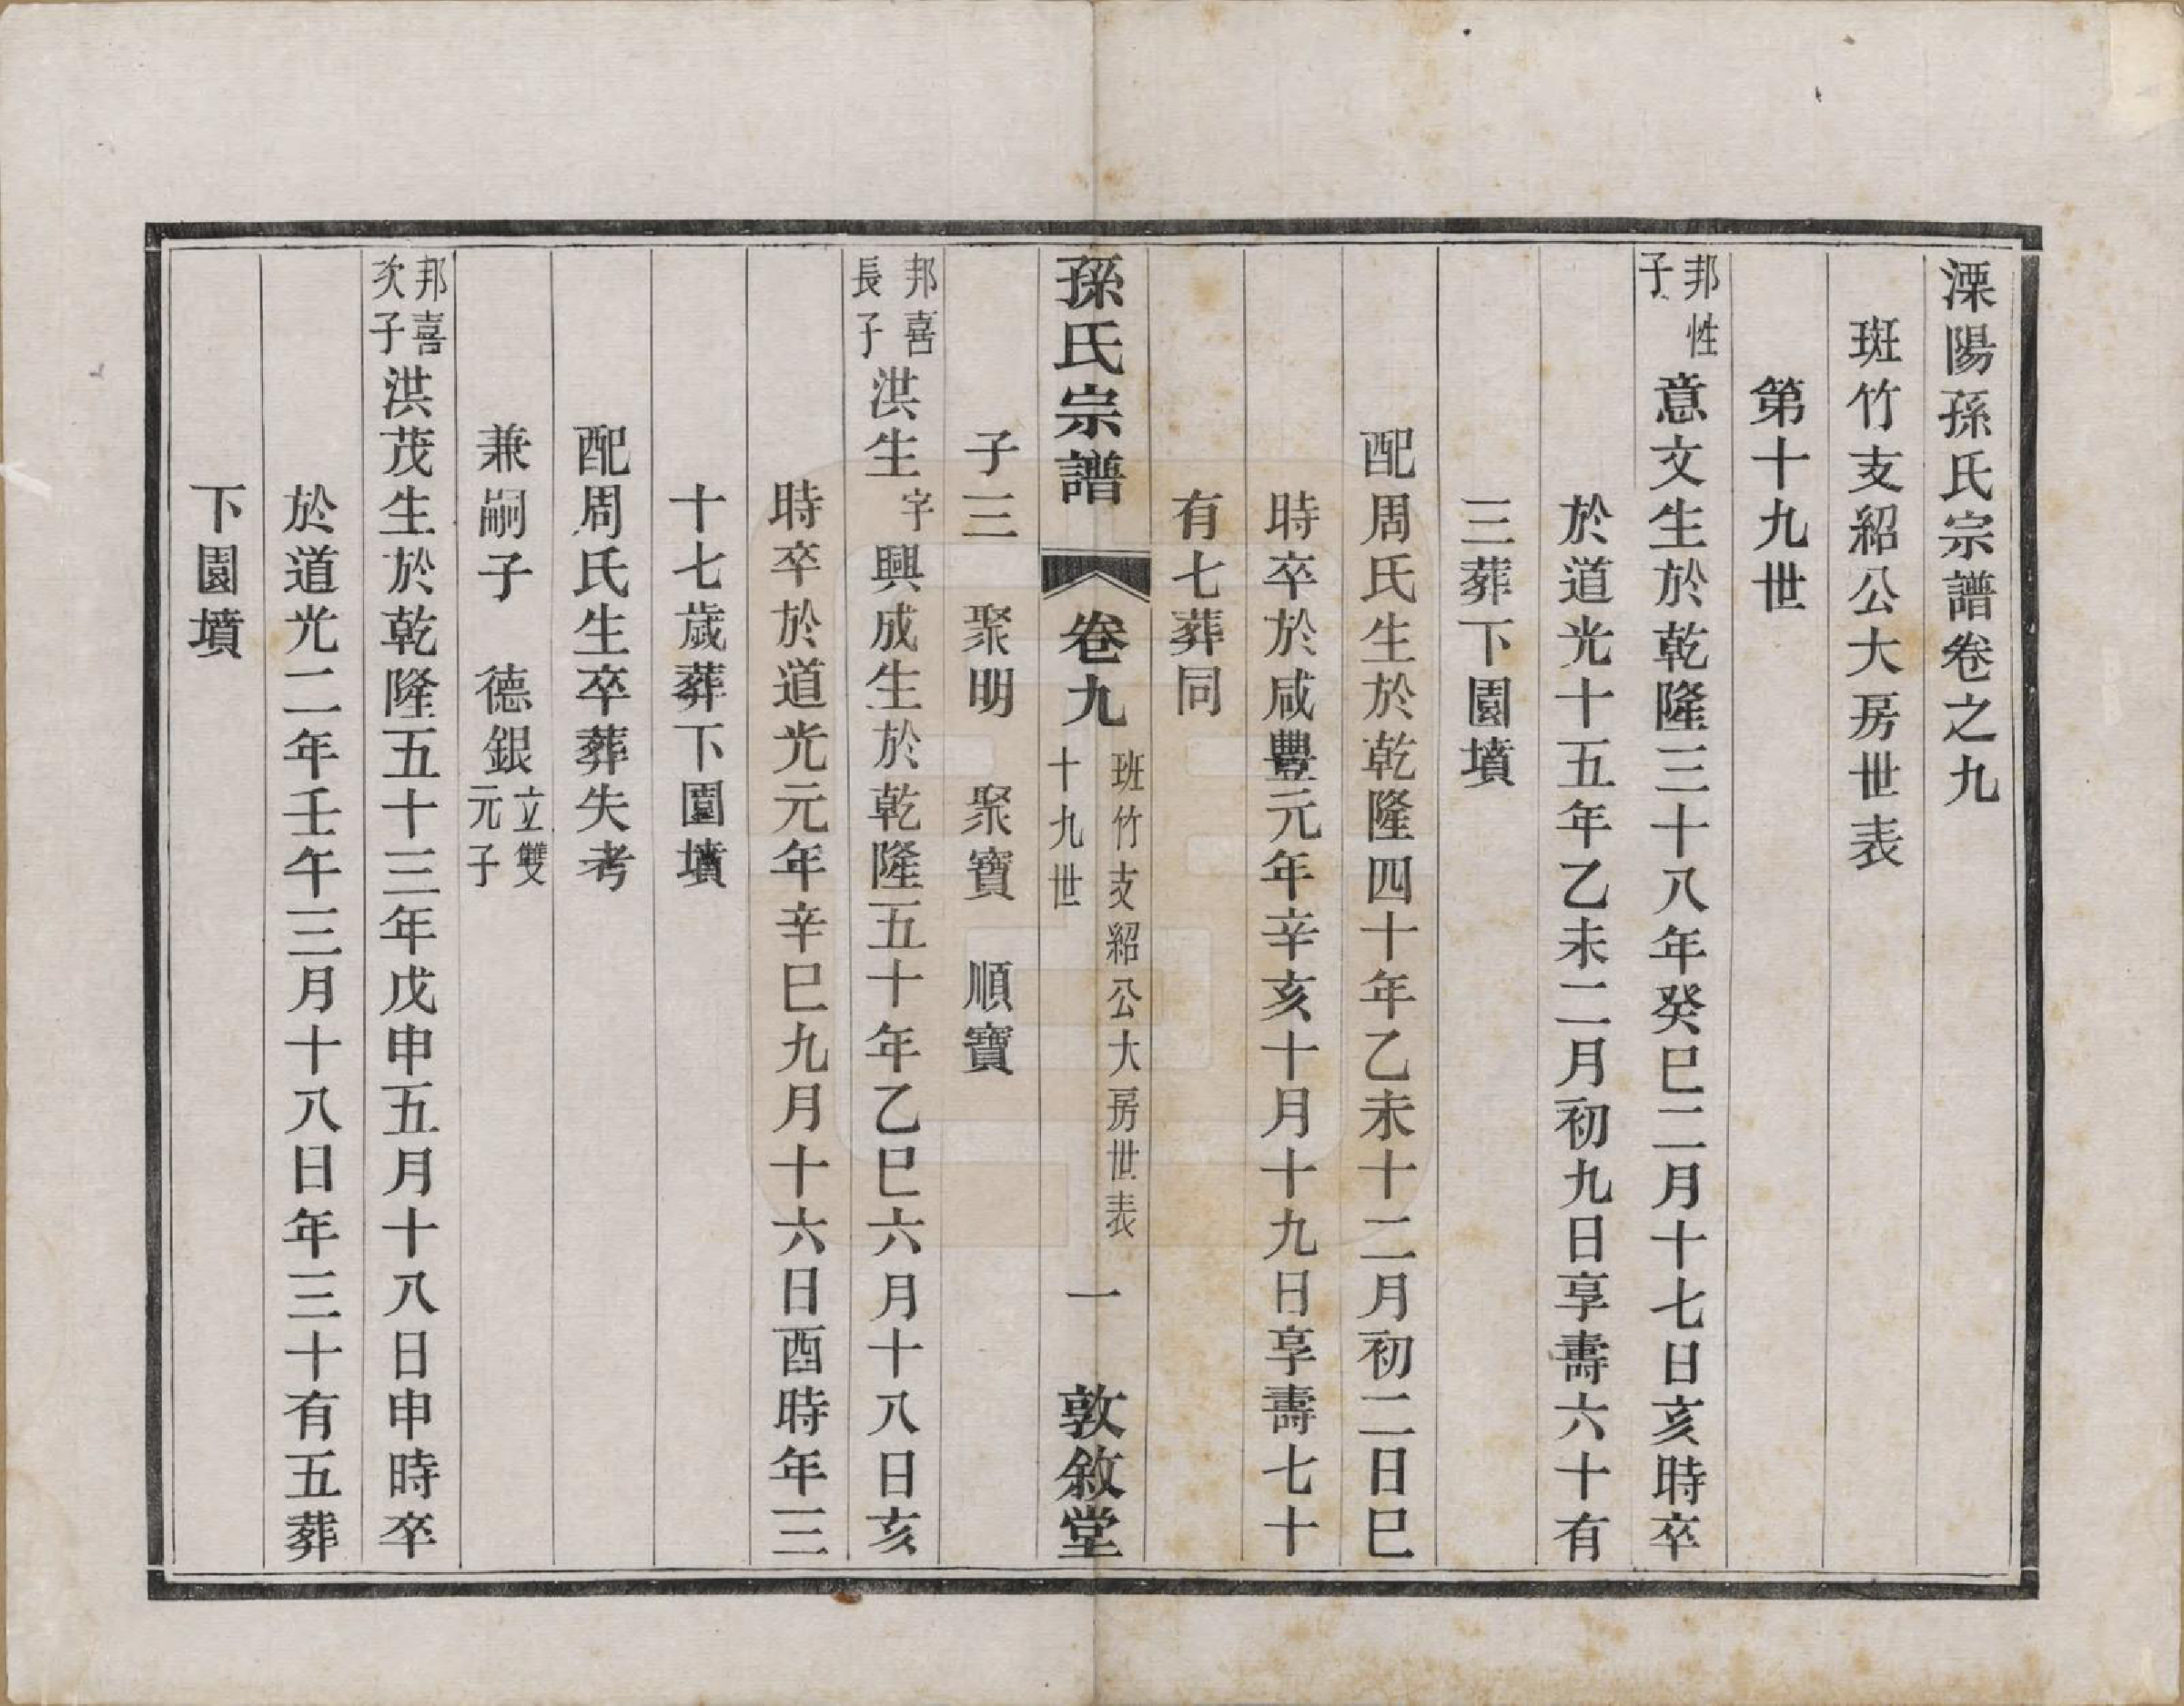 溧陽孫氏宗譜卷之九
斑竹支紹公大房世表
第十九世
邦性
子
意文生於乾隆三十八年癸巳二月十七日亥時卒
於道光十五年乙未二月初九日享壽六十有
三葬下園墳
配周氏生於乾隆四十年乙未十二月初二日巳
時卒於咸豐元年辛亥十月十九日享壽七十
有七葬同
孫氏宗譜 卷九
班竹支紹公大房世表
十九世
一 敦敘堂
子三 聚明 聚寶 順寶
邦喜
長子
洪生字興成生於乾隆五十年乙巳六月十八日亥
時卒於道光元年辛巳九月十六日酉時年三
十七歲葬下園墳
配周氏生卒葬失考
兼嗣子 德銀
立雙
元子
邦喜
次子
洪茂生於乾隆五十三年戊申五月十八日申時卒
於道光二年壬午三月十八日年三十有五葬
下園墳